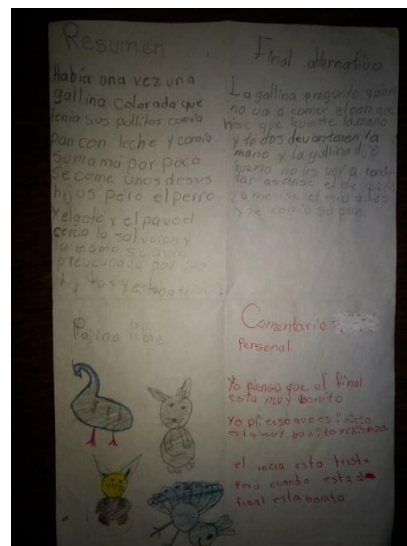 Resumen
Había una vez una
gallina colorada que
tenia sus pollitos comia
pan con leche y comia
su mamá por poco
se come unos de sus
hijos pero el perro
y el gato y el pavo el
cerdo lo salvaron y
la mama se
por sus
hijitos y
Final alternativo
La gallina pregunto quien
no va a comer el pan que
hise que levante la mano
y todos levantaron la
mano y la gallina dijo
bueno no les voy a
dar
yo me el mio adios
y se comio su pan.
Pajina libre
Comentario
Personal
Yo pienso que el final
esta muy bonito
Yo pienso que es
esta muy bonito
el inicio esta triste
pero cuando esta
final esta bonito